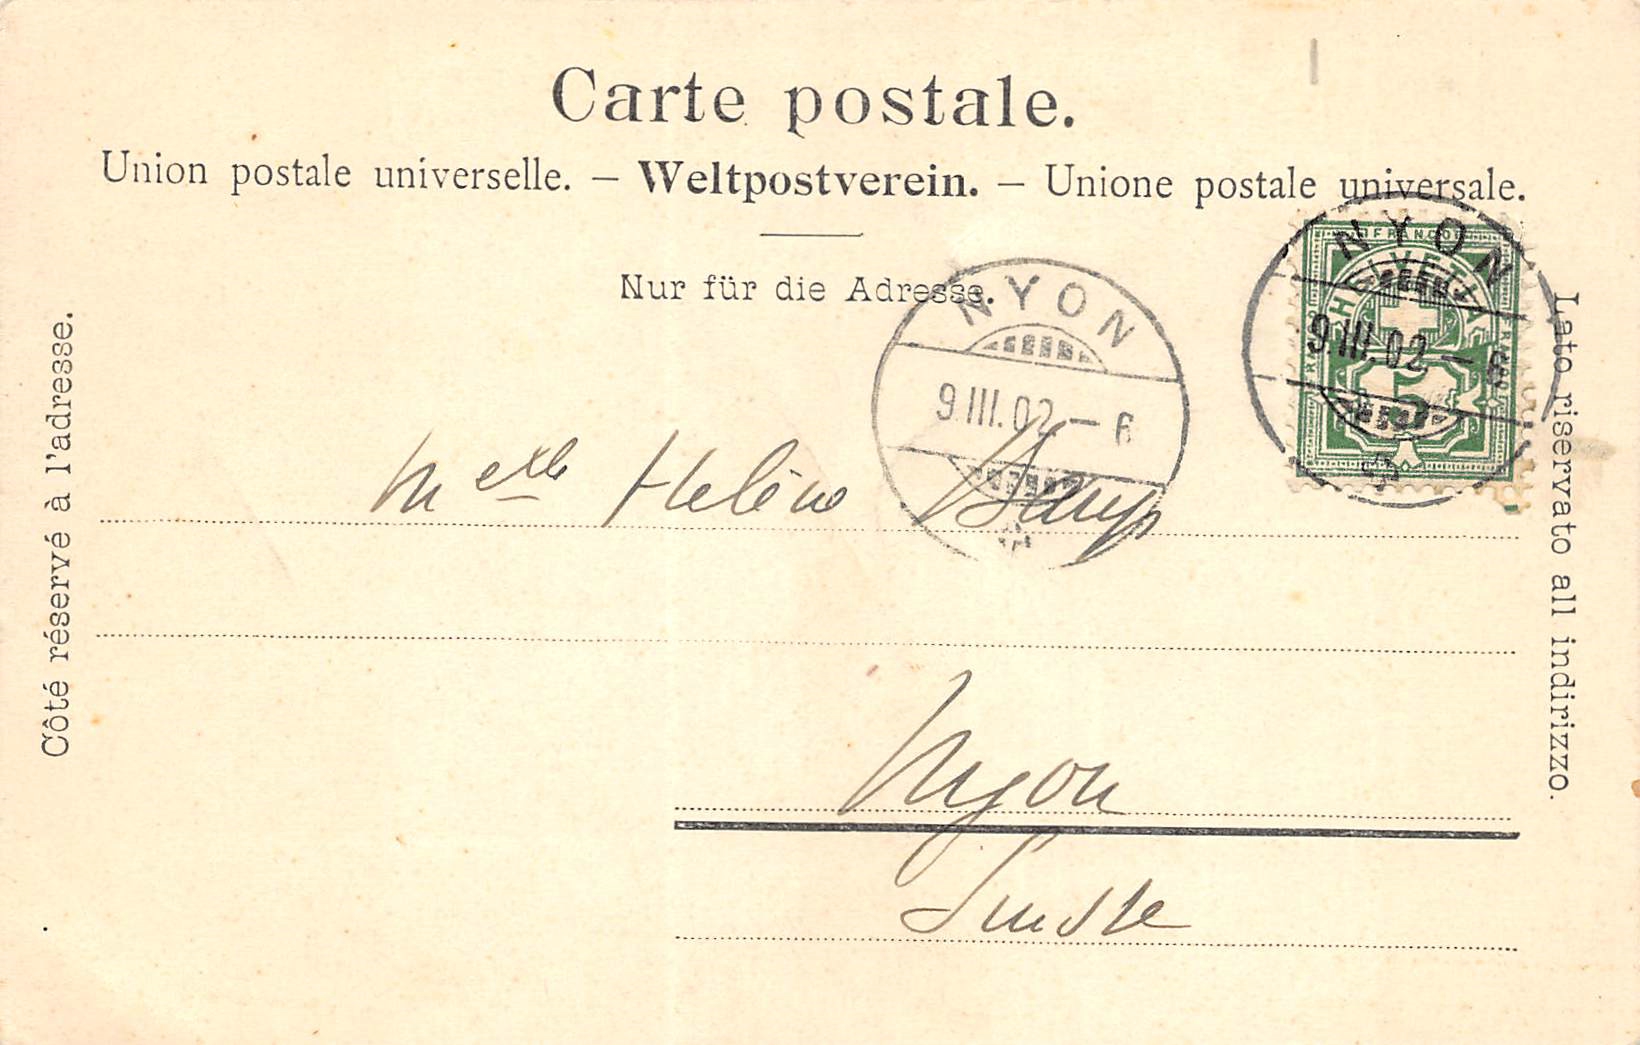 Carte postale.
Union postale universelle. – Weltpostverein. – Unione postale universale.
Nur für die Adresse.
Côté réservé à l'adresse.
Lato riservato all indirizzo.
NYON
9.III.02–6
NYON
9.III.02–
FRANCO
HELVETIA
5
Melle Hélène
Nyon
Suisse